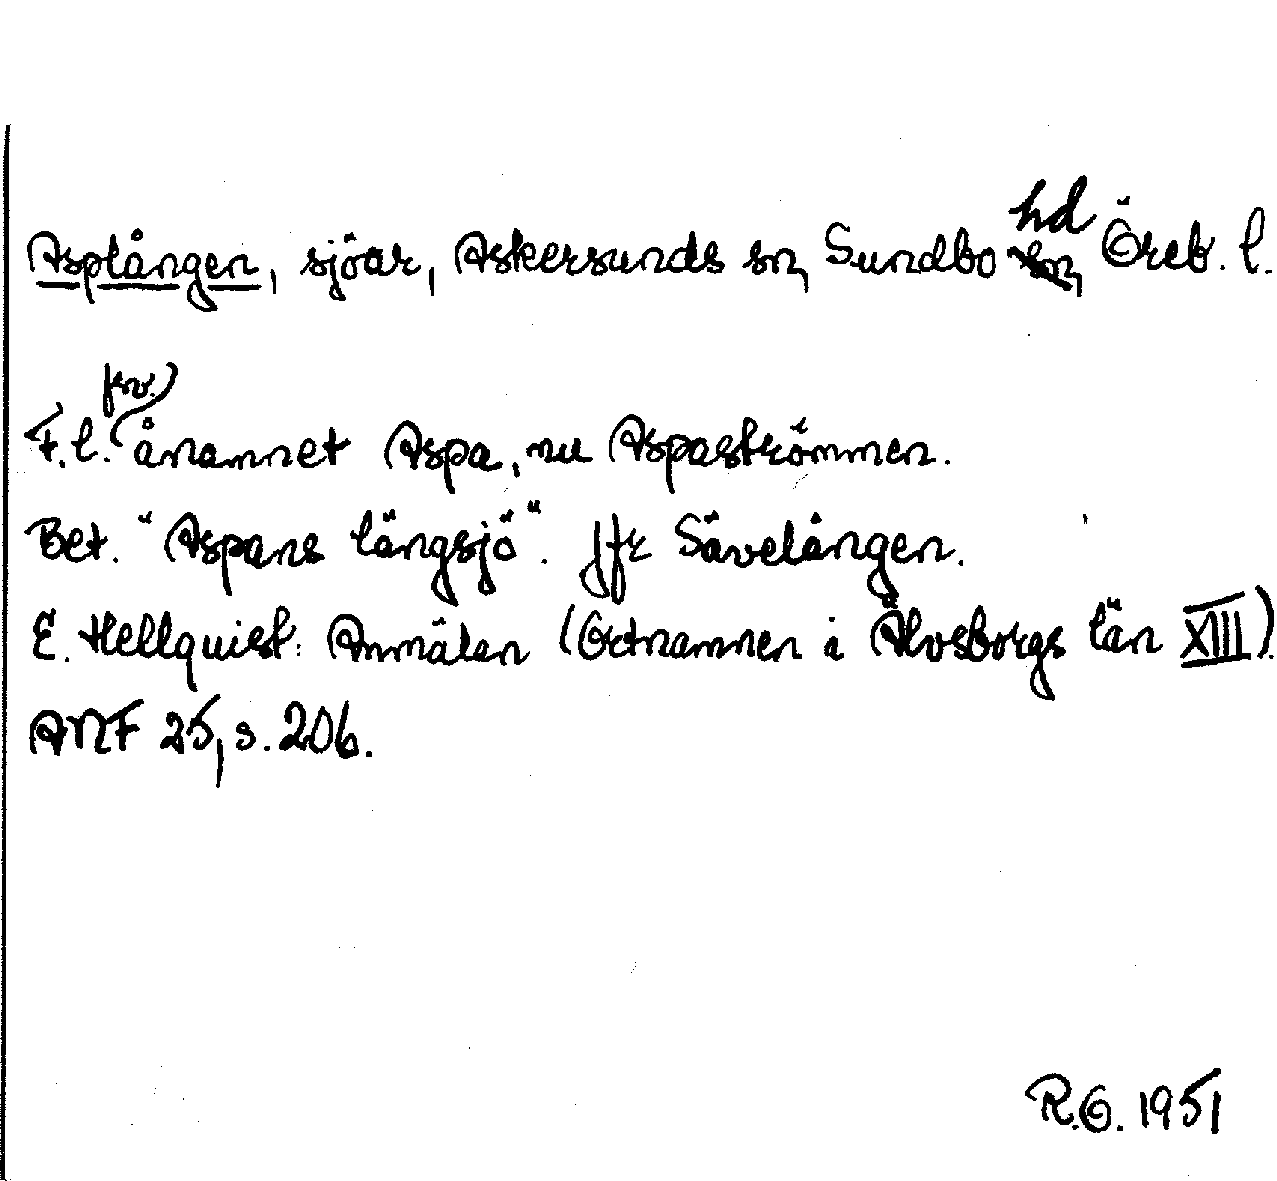 Asplången, sjöar, Askersunds sn, Sundbo hd Öreb. l.
F.l. (fsv.) ånamnet Aspa, nu Aspaströmmen.
Bet. "Aspans långsjö". Jfr Sävelången.
E. Hellquist: Anmälan (Ortnamnen i Älvsborgs län XIII)
ANF 25, s. 206.
R.O. 1951